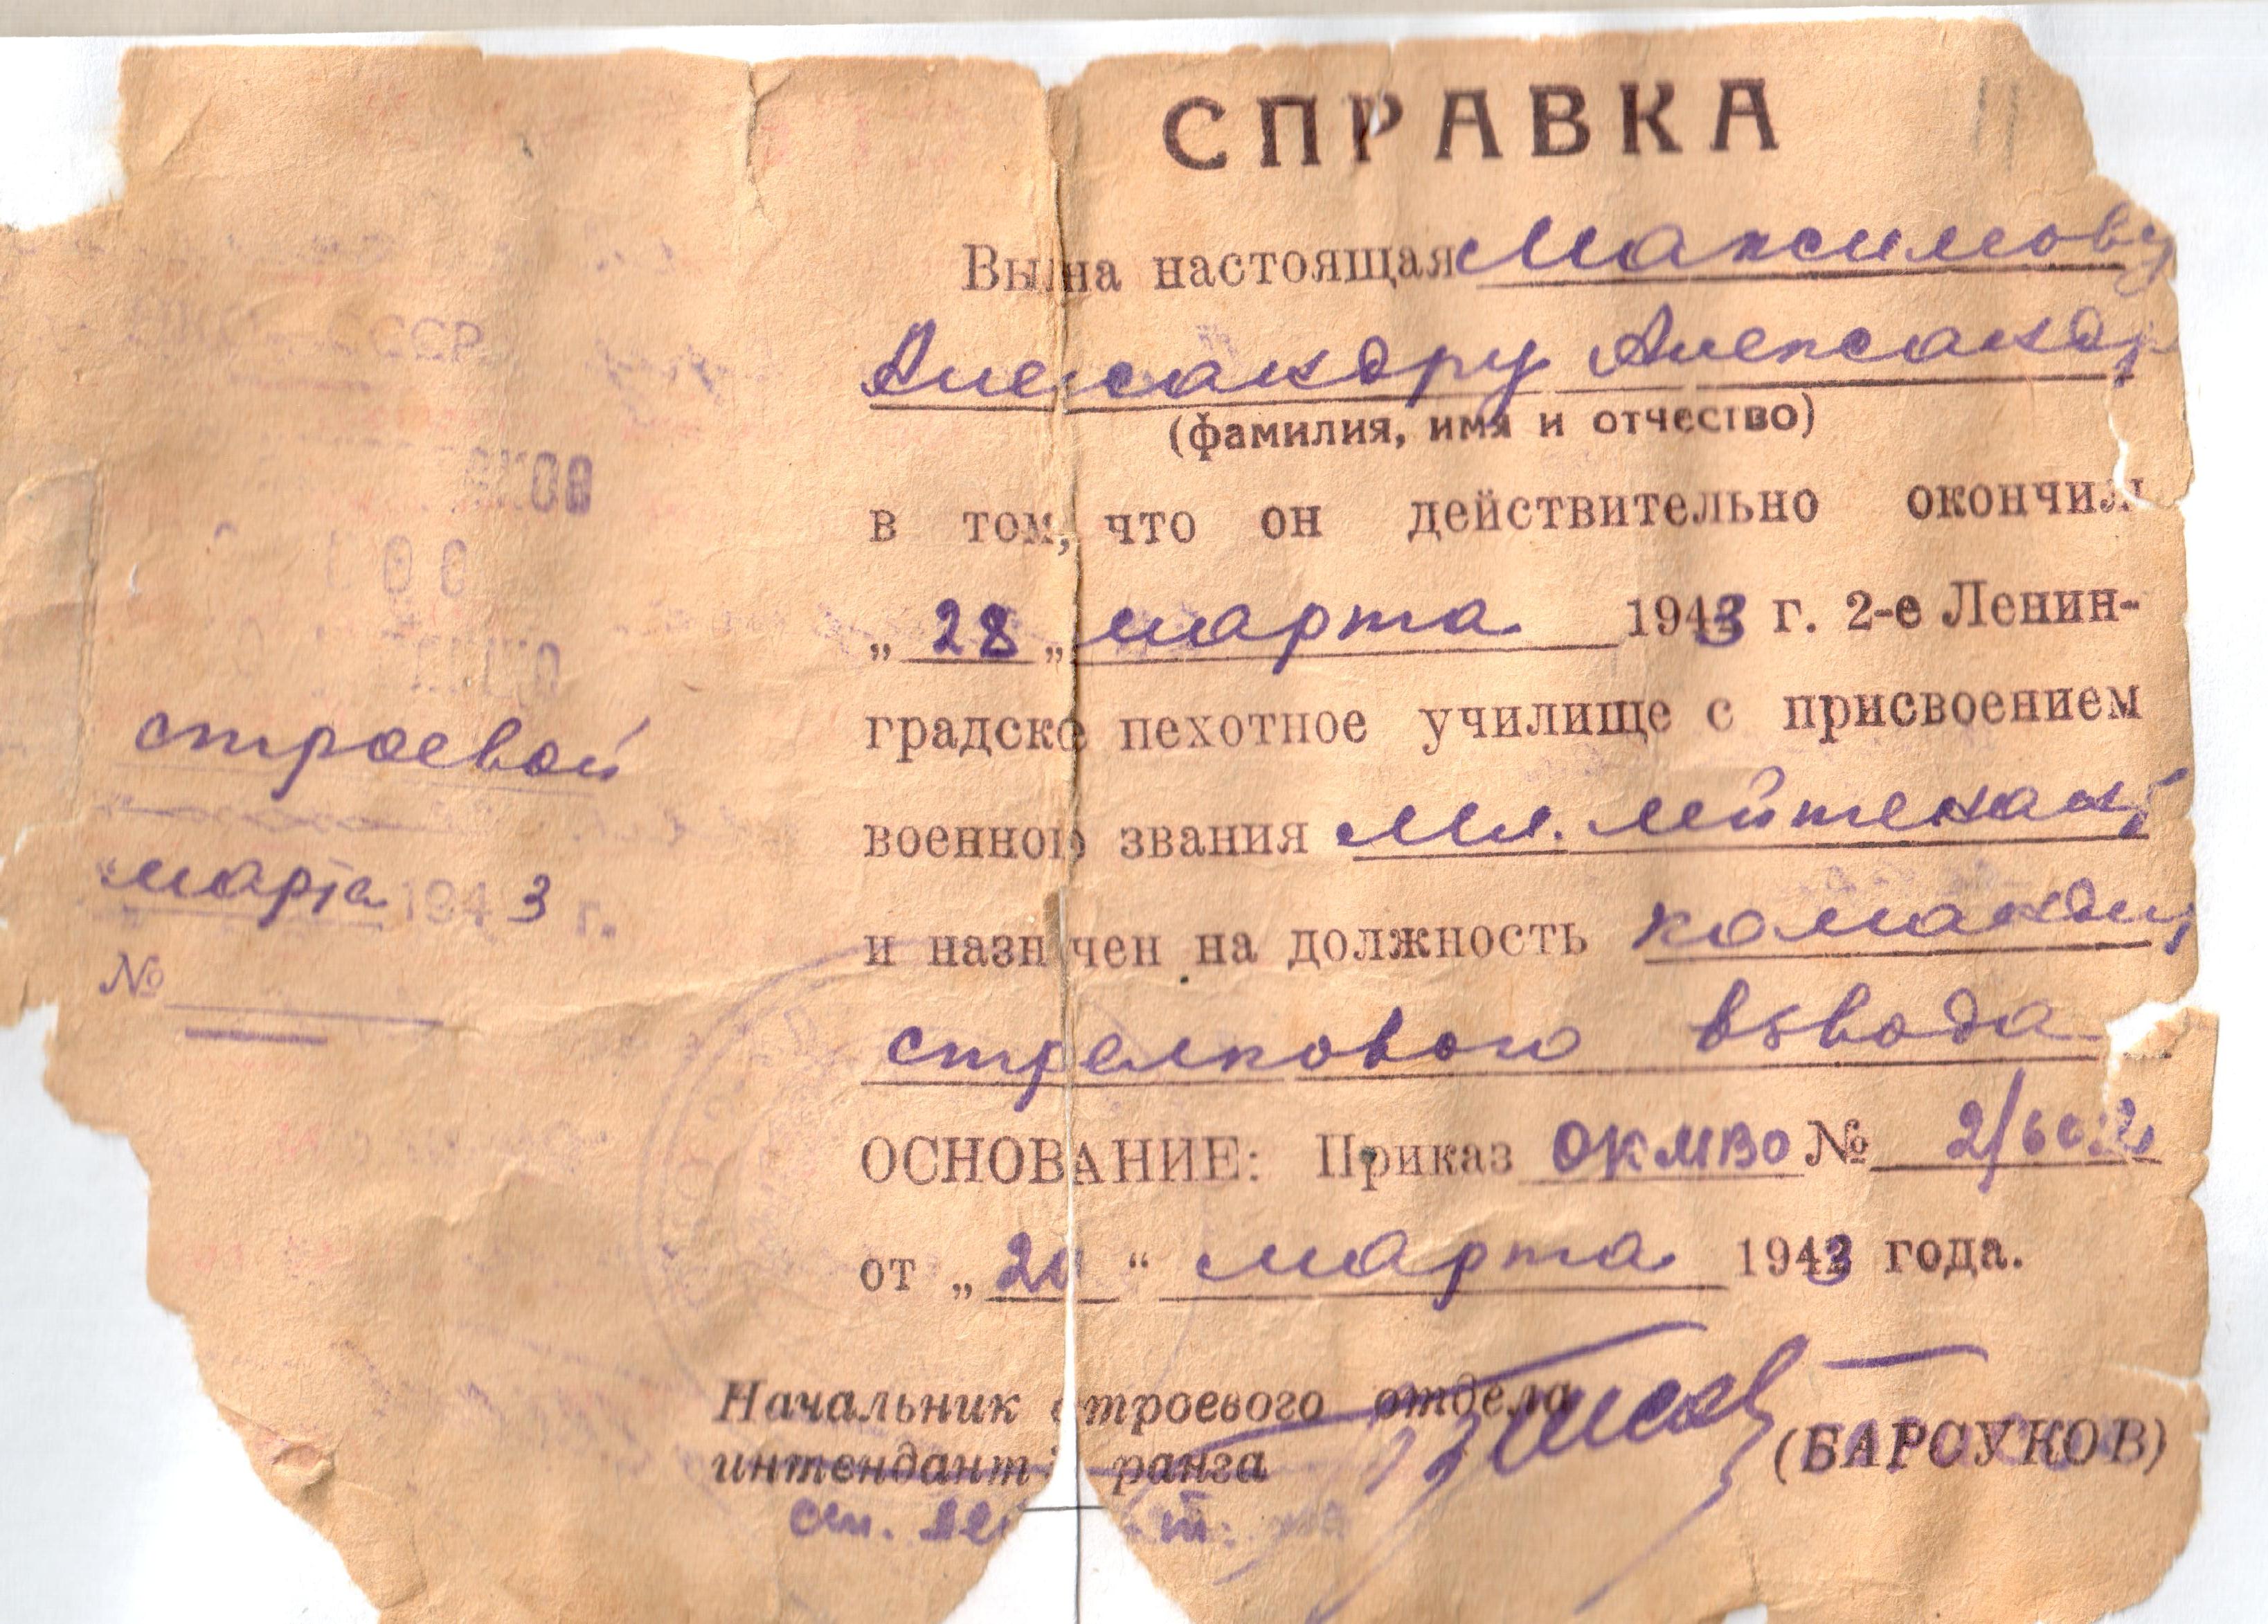 СПРАВКА
Вы на настоящая Максимову
Александру Александр
(фамилия, имя и отчество)
в том, что он действительно окончил
„ 28 „ марта 1943 г. 2-е Ленин-
градско пехотное училище с присвоением
военного звания Мл. лейтенант
и назн чен на должность команди
стрелкового взвода
ОСНОВАНИЕ: Приказ ОКМВО №
от „ “ марта 1943 года.
Начальник строевого отдела
интендант ранга (БАРСУКОВ)
ст.
СССР
строевой
марта 1943 г.
№